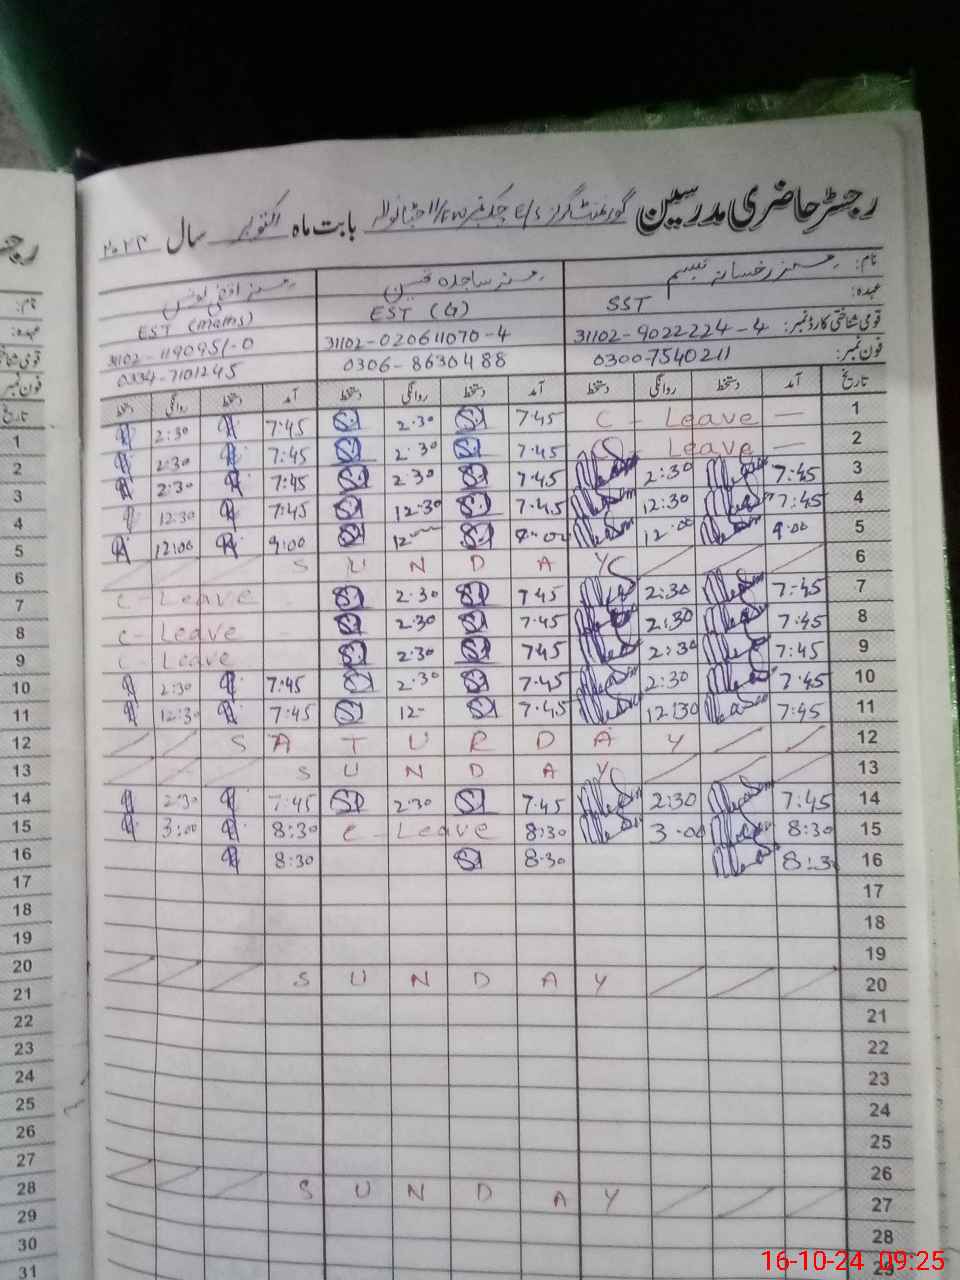 رجسٹر حاضری مدرسین گورنمنٹ گرلز E/S چک نمبر بابت ماہ اکتوبر سال ۲۰۲۴
نام: مسز رخسانہ تبسم مسز ساجدہ مسز
عہدہ: SST EST (G) EST (Maths)
قومی شناختی کارڈ نمبر: 31102-9022224-4 31102-020611070-4 31102-1190951-0
فون نمبر: 0300-7540211 0306-8630488 0334-7101245
تاریخ آمد دستخط روانگی دستخط آمد دستخط روانگی دستخط آمد دستخط روانگی دستخط
1 C - Leave — 7:45 2:30 7:45 2:30
2 Leave — 7:45 2:30 7:45 2:30
3 7:45 2:30 7:45 2:30 7:45 2:30
4 7:45 12:30 7:45 12:30 7:45 12:30
5 9:00 12:00 12 9:00 12:00
6 S U N D A Y
7 7:45 2:30 7:45 2:30 C - Leave
8 7:45 2:30 7:45 2:30 C - Leave
9 7:45 2:30 7:45 2:30 C - Leave
10 7:45 2:30 7:45 2:30 7:45 2:30
11 7:45 12:30 7:45 12- 7:45 12:30
12 S A T U R D A Y
13 S U N D A Y
14 7:45 2:30 7:45 2:30 7:45 2:30
15 8:30 3:00 8:30 C - Leave 8:30 3:00
16 8:3 8:30 8:30
17
18
19
20 S U N D A Y
21
22
23
24
25
26
27 S U N D A Y
28
29
رجس
نام:
عہدہ:
قومی شنا
فون نمبر
تاریخ
1
2
3
4
5
6
7
8
9
10
11
12
13
14
15
16
17
18
19
20
21
22
23
24
25
26
27
28
29
30
31
16-10-24 09:25